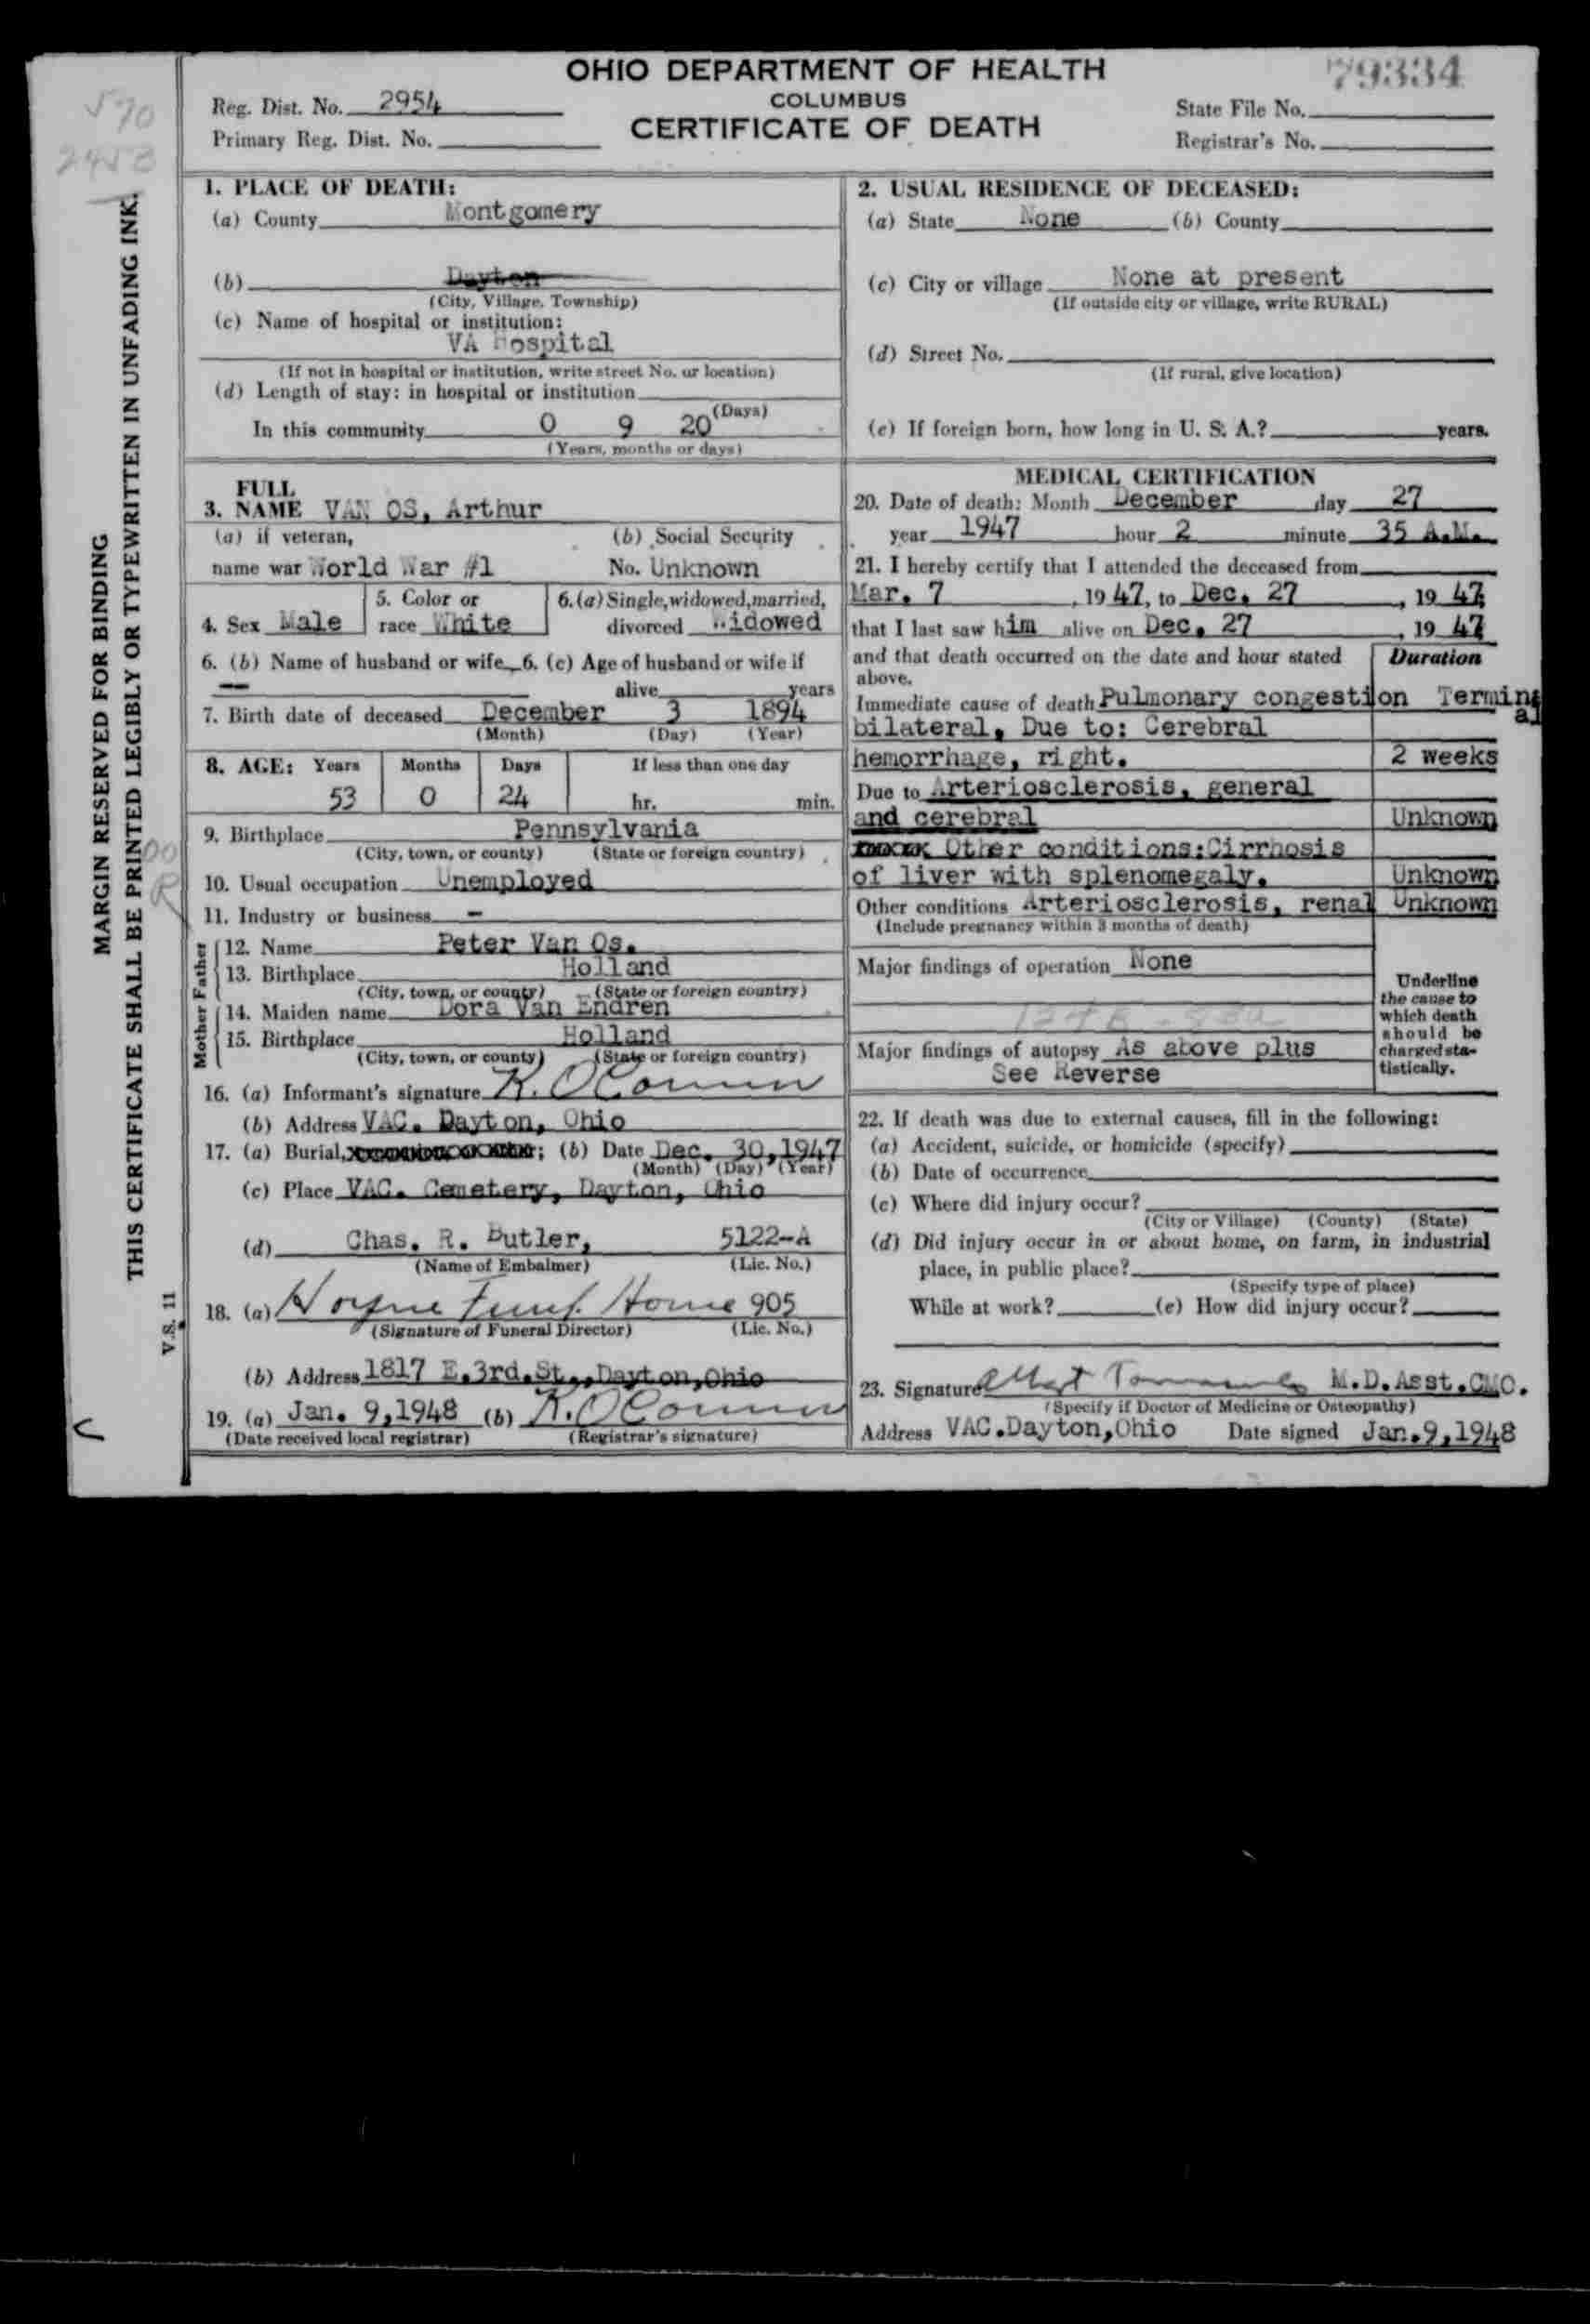 OHIO DEPARTMENT OF HEALTH
COLUMBUS
CERTIFICATE OF DEATH
79334
Reg. Dist. No. 2954
Primary Reg. Dist. No.
State File No.
Registrar's No.
MARGIN RESERVED FOR BINDING
THIS CERTIFICATE SHALL BE PRINTED LEGIBLY OR TYPEWRITTEN IN UNFADING INK.
V.S. 11
1. PLACE OF DEATH:
(a) County Montgomery
(b) Dayton
(City, Village, Township)
(c) Name of hospital or institution:
VA Hospital
(If not in hospital or institution, write street No. or location)
(d) Length of stay: in hospital or institution
(Days)
In this community 0 9 20
(Years, months or days)
2. USUAL RESIDENCE OF DECEASED:
(a) State None (b) County
(c) City or village None at present
(If outside city or village, write RURAL)
(d) Street No.
(If rural, give location)
(e) If foreign born, how long in U. S. A.? years.
FULL
3. NAME VAN OS, Arthur
(a) if veteran, (b) Social Security
name war World War #1 No. Unknown
4. Sex Male 5. Color or race White 6. (a) Single, widowed, married, divorced Widowed
6. (b) Name of husband or wife 6. (c) Age of husband or wife if
— alive years
7. Birth date of deceased December 3 1894
(Month) (Day) (Year)
8. AGE: Years Months Days If less than one day
53 0 24 hr. min.
9. Birthplace Pennsylvania
(City, town, or county) (State or foreign country)
10. Usual occupation Unemployed
11. Industry or business -
Father
12. Name Peter Van Os.
13. Birthplace Holland
(City, town, or county) (State or foreign country)
Mother
14. Maiden name Dora Van Endren
15. Birthplace Holland
(City, town, or county) (State or foreign country)
16. (a) Informant's signature K. O'Connor
(b) Address VAC. Dayton, Ohio
17. (a) Burial, ; (b) Date Dec. 30,1947
(Month) (Day) (Year)
(c) Place VAC. Cemetery, Dayton, Ohio
(d) Chas. R. Butler, 5122-A
(Name of Embalmer) (Lic. No.)
18. (a) Wayne Funl. Home 905
(Signature of Funeral Director) (Lic. No.)
(b) Address 1817 E.3rd.St.,Dayton,Ohio
19. (a) Jan. 9,1948 (b) K. O'Connor
(Date received local registrar) (Registrar's signature)
MEDICAL CERTIFICATION
20. Date of death: Month December day 27
year 1947 hour 2 minute 35 A.M.
21. I hereby certify that I attended the deceased from
Mar. 7, 1947, to Dec. 27, 1947
that I last saw him alive on Dec. 27, 1947
and that death occurred on the date and hour stated Duration
above.
Immediate cause of death Pulmonary congestion Terminal
bilateral, Due to: Cerebral
hemorrhage, right. 2 weeks
Due to Arteriosclerosis, general
and cerebral Unknown
Other conditions:Cirrhosis
of liver with splenomegaly. Unknown
Other conditions Arteriosclerosis, renal Unknown
(Include pregnancy within 3 months of death)
Major findings of operation None
Major findings of autopsy As above plus
See Reverse
Underline
the cause to
which death
should be
charged sta-
tistically.
22. If death was due to external causes, fill in the following:
(a) Accident, suicide, or homicide (specify)
(b) Date of occurrence
(c) Where did injury occur?
(City or Village) (County) (State)
(d) Did injury occur in or about home, on farm, in industrial
place, in public place?
(Specify type of place)
While at work? (e) How did injury occur?
23. Signature Albert M.D.Asst.CMO.
(Specify if Doctor of Medicine or Osteopathy)
Address VAC.Dayton,Ohio Date signed Jan.9,1948